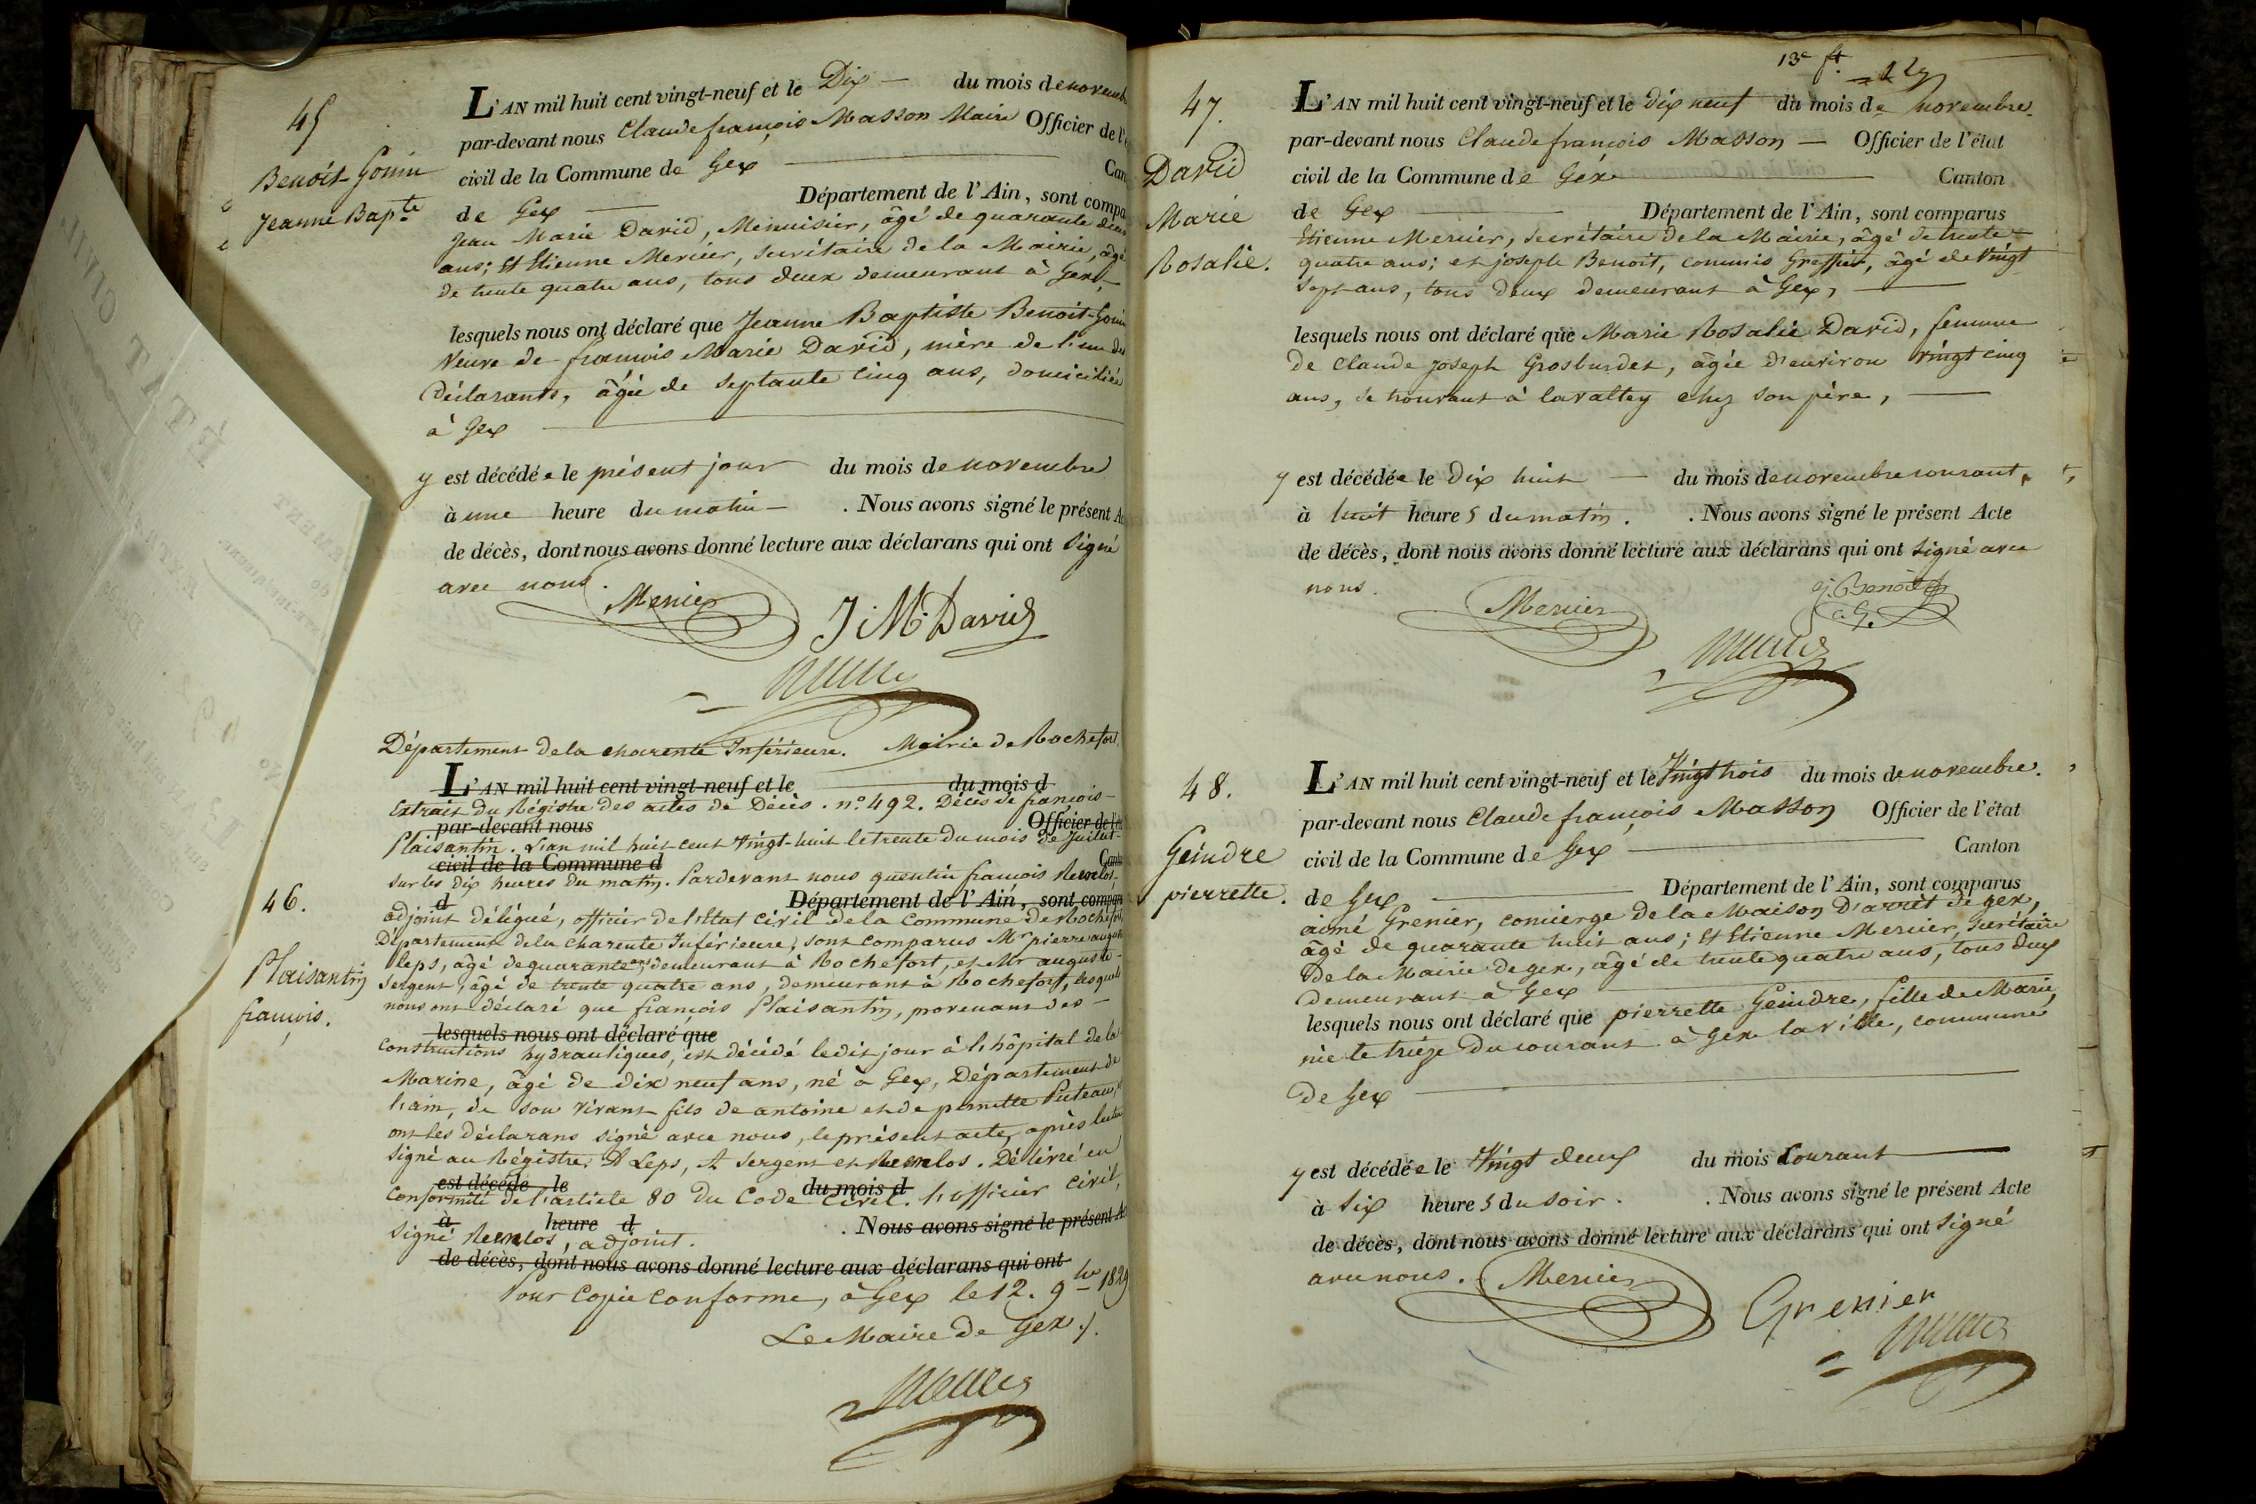 45
Benoit-Gouin
Jeanne Bap.te
L'AN mil huit cent vingt-neuf et le Dix du mois de novemb
par-devant nous Claude françois Masson Maire Officier de l'
civil de la Commune de Gex Can
de Gex Département de l'Ain, sont compa
Jean Marie David, Menuisier, âgé de quarante deux
ans; Et Etienne Mercier, secrétaire de la Mairie, âgé
de trente quatre ans, tous deux demeurant à Gex,
lesquels nous ont déclaré que Jeanne Baptiste Benoit-Gouin
Veuve de françois Marie David, mère de l'un des
déclarants, âgée de septante cinq ans, domiciliée
à Gex
y est décédée le présent jour du mois de novembre
à une heure du matin . Nous avons signé le présent A
de décès, dont nous avons donné lecture aux déclarans qui ont signé
avec nous.
Mercier J. M. David
Département de la charente Inférieure. Mairie de Rochefort
L'AN mil huit cent vingt-neuf et le du mois d
Extrait du Régistre des actes de Décès. n.o 492. Décès de françois
par-devant nous Officier de l'é
Plaisantin. L'an mil huit cent vingt-huit le trente du mois de Juillet
civil de la Commune d Canto
sur les dix heures du matin. Pardevant nous quentin françois
46.
d Département de l'Ain, sont compa
adjoint délégué, officier de l'Etat civil de la commune de Rochefort,
Département de la charente Inférieure, sont comparus Mr pierre auguste
Plaisantin
françois.
leps, âgé de quarante ans, demeurant à Rochefort, et Mr auguste
Sergent, âgé de trente quatre ans, demeurant à Rochefort, lesquels
nous ont déclaré que françois Plaisantin, provenant des
lesquels nous ont déclaré que
constructions hydrauliques, est décédé ledit jour à l'hôpital de la
Marine, âgé de dix neuf ans, né à Gex, Département de
l'ain, de son vivant fils de antoine et de pernette Puteau,
ont les déclarans signé avec nous, le présent acte, après lecture
signé au Régistre, A Leps, A Sergent et . Délivré en
est décédé le du mois d
conformité de l'article 80 du Code Civil. l'officier civil,
à heure d . Nous avons signé le présent Ac
signé , adjoint.
de décès, dont nous avons donné lecture aux déclarans qui ont
Pour Copie conforme, à Gex le 12. 9bre 1829
Le Maire de Gex./.
13e ft.
47.
David
Marie
Rosalie.
L'AN mil huit cent vingt-neuf et le dix neuf du mois de novembre
par-devant nous Claude françois Masson Officier de l'état
civil de la Commune de Gex Canton
de Gex Département de l'Ain, sont comparus
Etienne Mercier, secrétaire de la Mairie, âgé de trente
quatre ans; et joseph Benoit, commis Greffier, âgé de vingt
sept ans, tous deux demeurant à Gex,
lesquels nous ont déclaré que Marie Rosalie David, femme
de Claude Joseph Grosburdet, âgée d'environ vingt cinq
ans, se trouvant à lavattey chez son père,
y est décédée le Dix huit du mois de novembre courant,
à huit heures du matin. . Nous avons signé le présent Acte
de décès, dont nous avons donné lecture aux déclarans qui ont signé avec
nous.
Mercier j. Benoit
c. G.
48.
Geindre
pierrette.
L'AN mil huit cent vingt-neuf et le Vingt trois du mois de novembre.
par-devant nous Claude françois Masson Officier de l'état
civil de la Commune de Gex Canton
de Gex Département de l'Ain, sont comparus
aimé Grenier, concierge de la Maison D'arrêt de gex,
âgé de quarante huit ans; Et Etienne Mercier, secrétaire
de la Mairie de gex, âgé de trente quatre ans, tous deux
demeurant à Gex
lesquels nous ont déclaré que pierrette Geindre, fille de Marie,
née le treize du courant à Gex la ville, commune
de Gex
y est décédée le Vingt deux du mois Courant
à six heures du soir. . Nous avons signé le présent Acte
de décès, dont nous avons donné lecture aux déclarans qui ont signé
avec nous.
Mercier Grenier